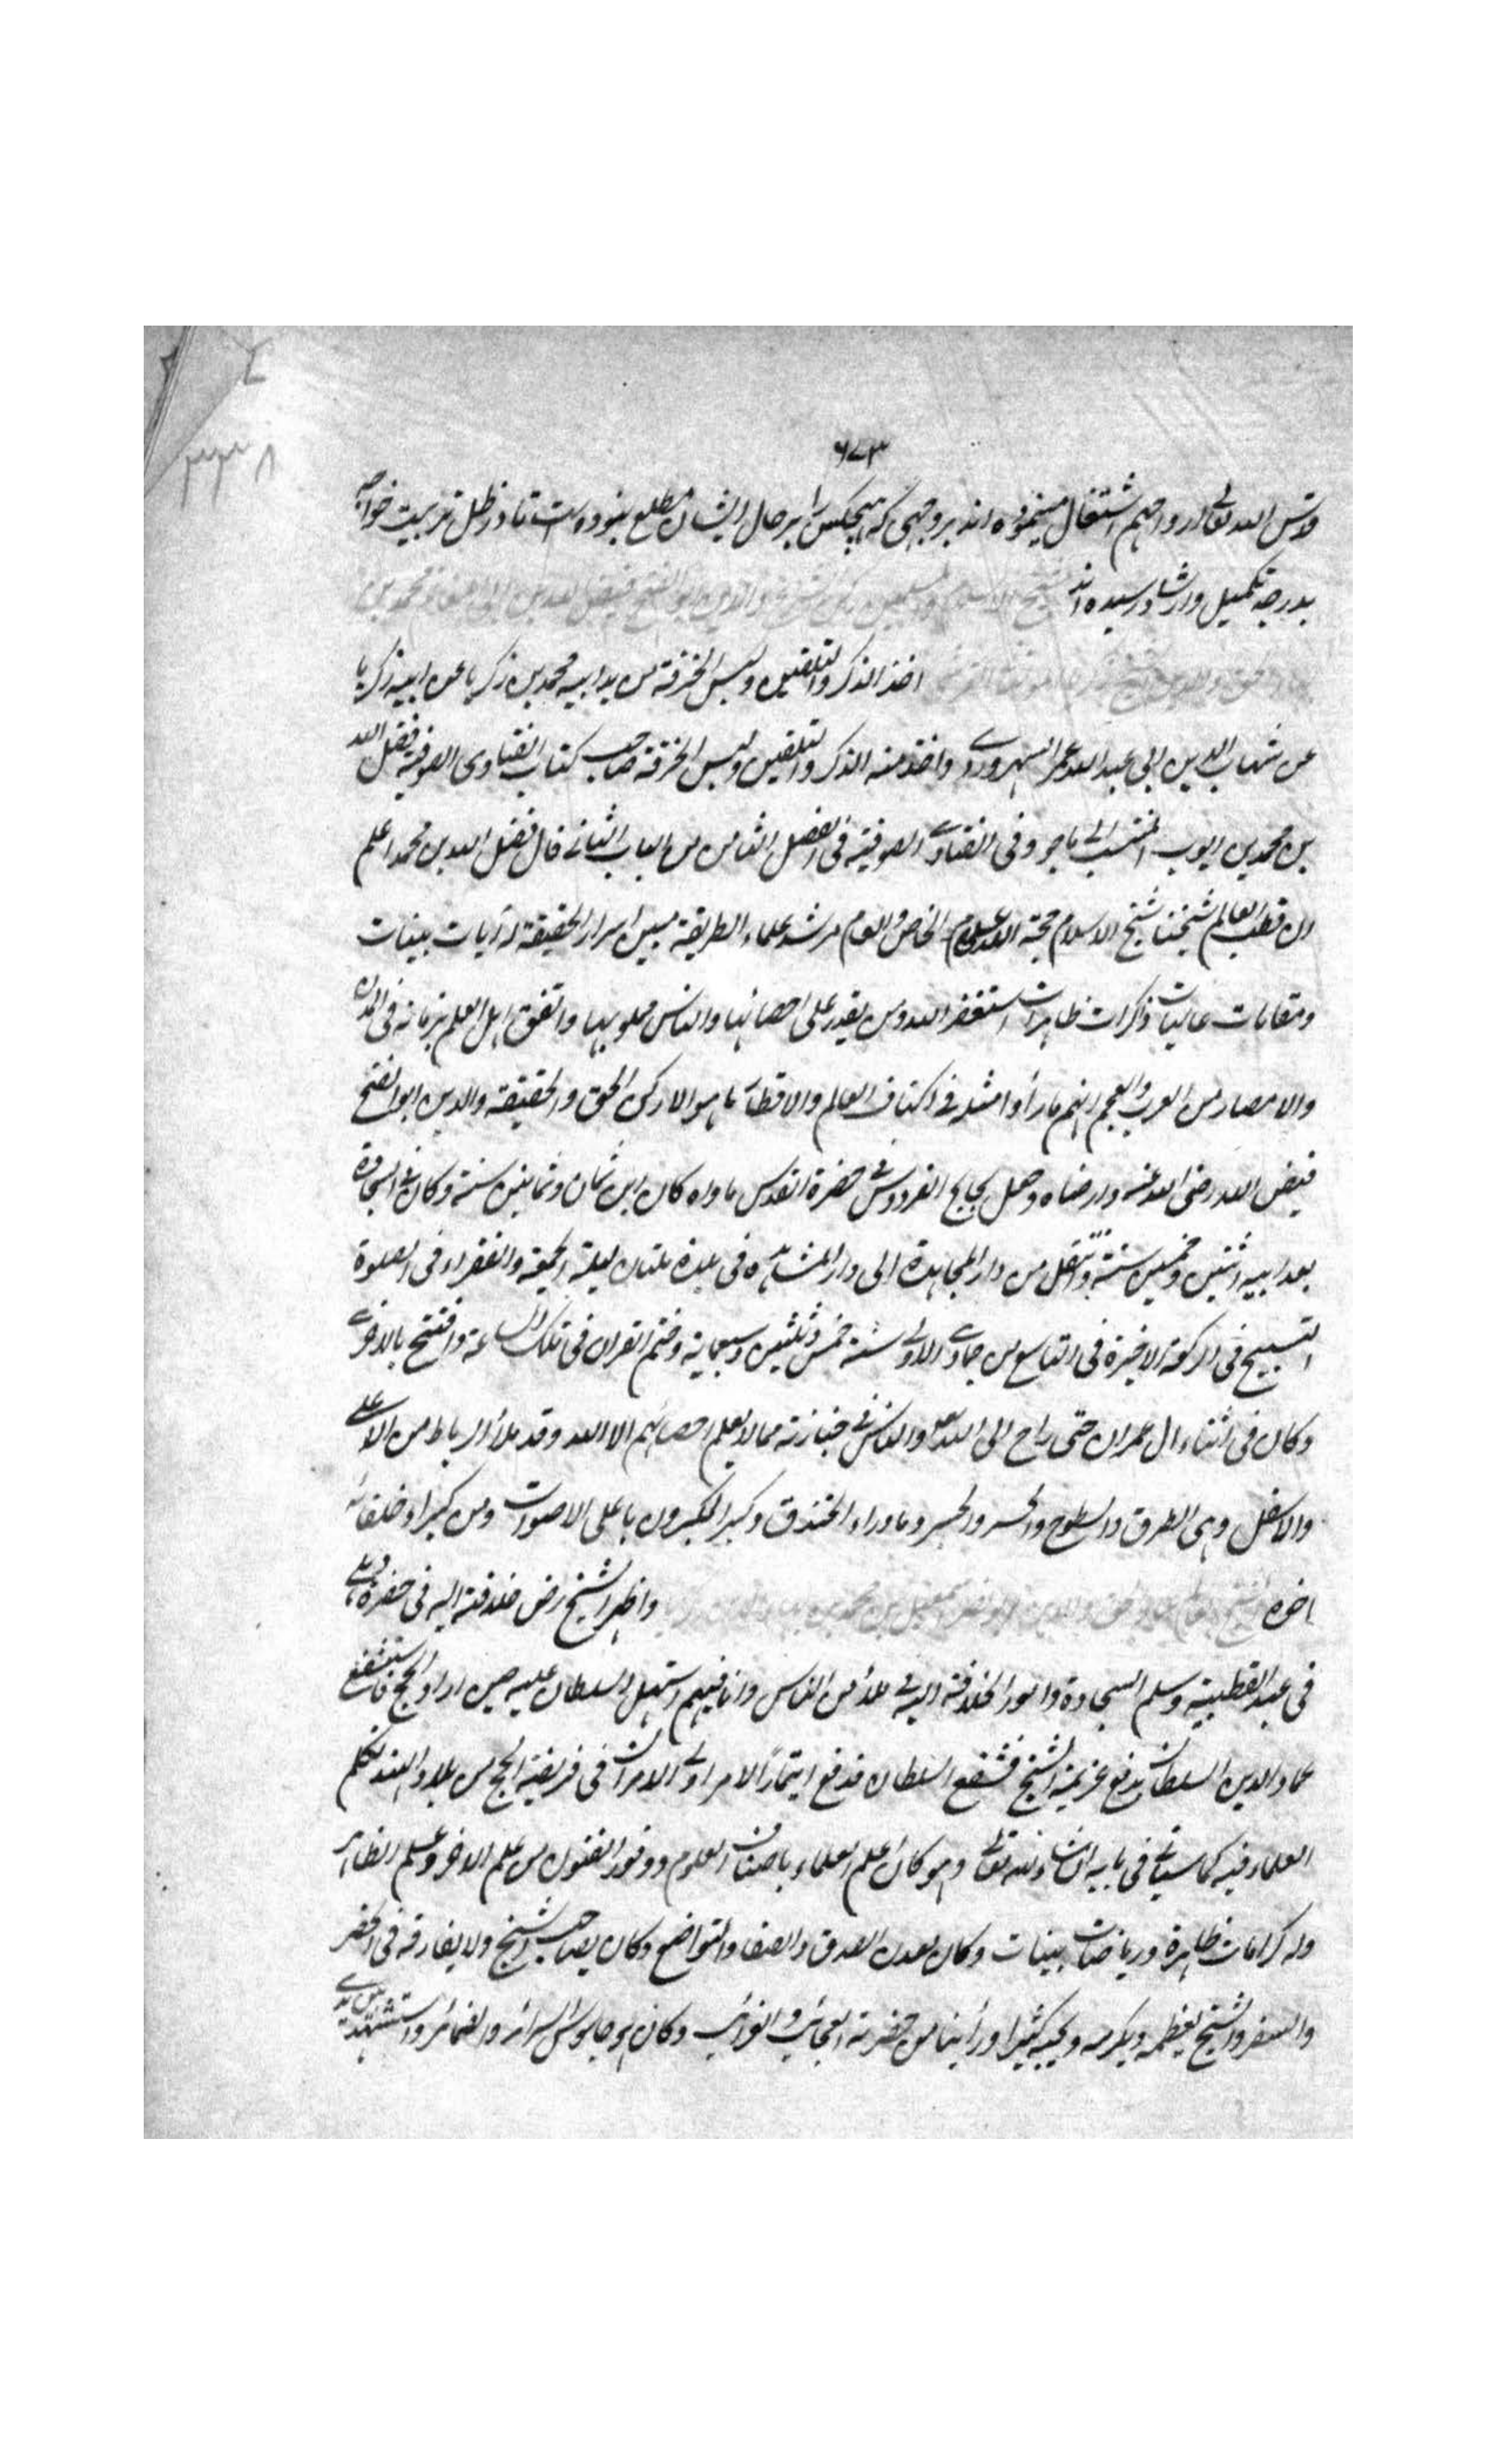 ۶۷۳
۳۳۸
قدس الله تعالی ارواحهم اشتغال مینموده اند بروجهی که هیچکس را بر حال ایشان مطلع نبوده است تا در ظل تربیت خواجه
بدرجه تکمیل وارشاد رسیده اند شیخ الاسلام
اخذ الذکر والتلقین ولبس الخرقة من ید ابیه محمد بن زکریا عن ابیه زکریا
عن شهاب الدین ابی عبد الله عمر السهروردی واخذ منه الذکر والتلقین ولبس الخرقة صاحب کتاب الفتاوی الصوفیة فضل الله
بن محمد بن ایوب المنتسب الی ماجو وفی الفتاوی الصوفیة فی الفصل الثامن من الباب الثانی قال فضل الله بن محمد اعلم
ان قطب العالم شیخنا شیخ الاسلام حجة الله علی الخاص والعام مرشد علماء الطریقة مبین اسرار الحقیقة له آیات بینات
ومقامات عالیات وکرامات ظاهرات استغفر الله ومن یقدر علی احصائها والناس مملو بها واتفق اهل العلم بزمانه فی البلدان
والامصار من العرب والعجم انهم ما رأوا مثله فی اکناف العالم والاقطار ما هو الا رکن الحق والحقیقة والدین ابو الفتح
فیض الله رضی الله عنه وارضاه وجعل بحابح الفردوس فی حضرة القدس ماواه کان ابن ثمان وثمانین سنة وکان فی السجادة
بعد ابیه اثنین وخمسین سنة وانتقل من دار المجاهدة الی دار المشاهدة فی بلدة ملتان لیلة الجمعة والفقراء فی الصلوة
التسبیح فی الرکعة الاخیرة فی التاسع من جمادی الاولی سنة خمس وثلثین وسبعمایة وختم القران فی تلک الساعة وافتتح بالاخری
وکان فی اثناء ال عمران حتی راح الی الله تعالی والناس فی جنازته مما لا یعلم احصائهم الا الله وقد ملأ الرباط من الاعلی
والاسفل وهی الطرق والسطوح والجسر وما وراء الخندق وکبر المکبرون باعلی الاصوات ومن کبراء خلفائه
اخوه واظهر الشیخ رض خلافته الیه فی حضرة دهلی
فی عید القطبیة وسلم السجادة وامور الخلافة الیه فی ملأ من الناس وانا فیهم استهل السلطان علیه حین اراد الحج فاستشفع
عماد الدین السلطان بدفع عزیمة الشیخ فشفع السلطان فدفع ایتمارا لامر اولی الامر فی فریضة الحج من بلاد الهند تکلم
العلماء فیه کما سیاتی فی بابه ان شاء الله تعالی وهو کان اعلم العلماء باصناف العلوم ووفور الفنون من علم الاخر وعلم الظاهر
وله کرامات ظاهرة وریاضات بینات وکان معدن الصدق والصفا والتواضع وکان یصاحب الشیخ ولا یفارقه فی الحضر
والسفر والشیخ یعظمه ویکرمه ویحبه کثیرا ورأینا من حضرته العجائب والغرائب وکان هو جاسوس السرائر والضمائر واستشهد بین یدی